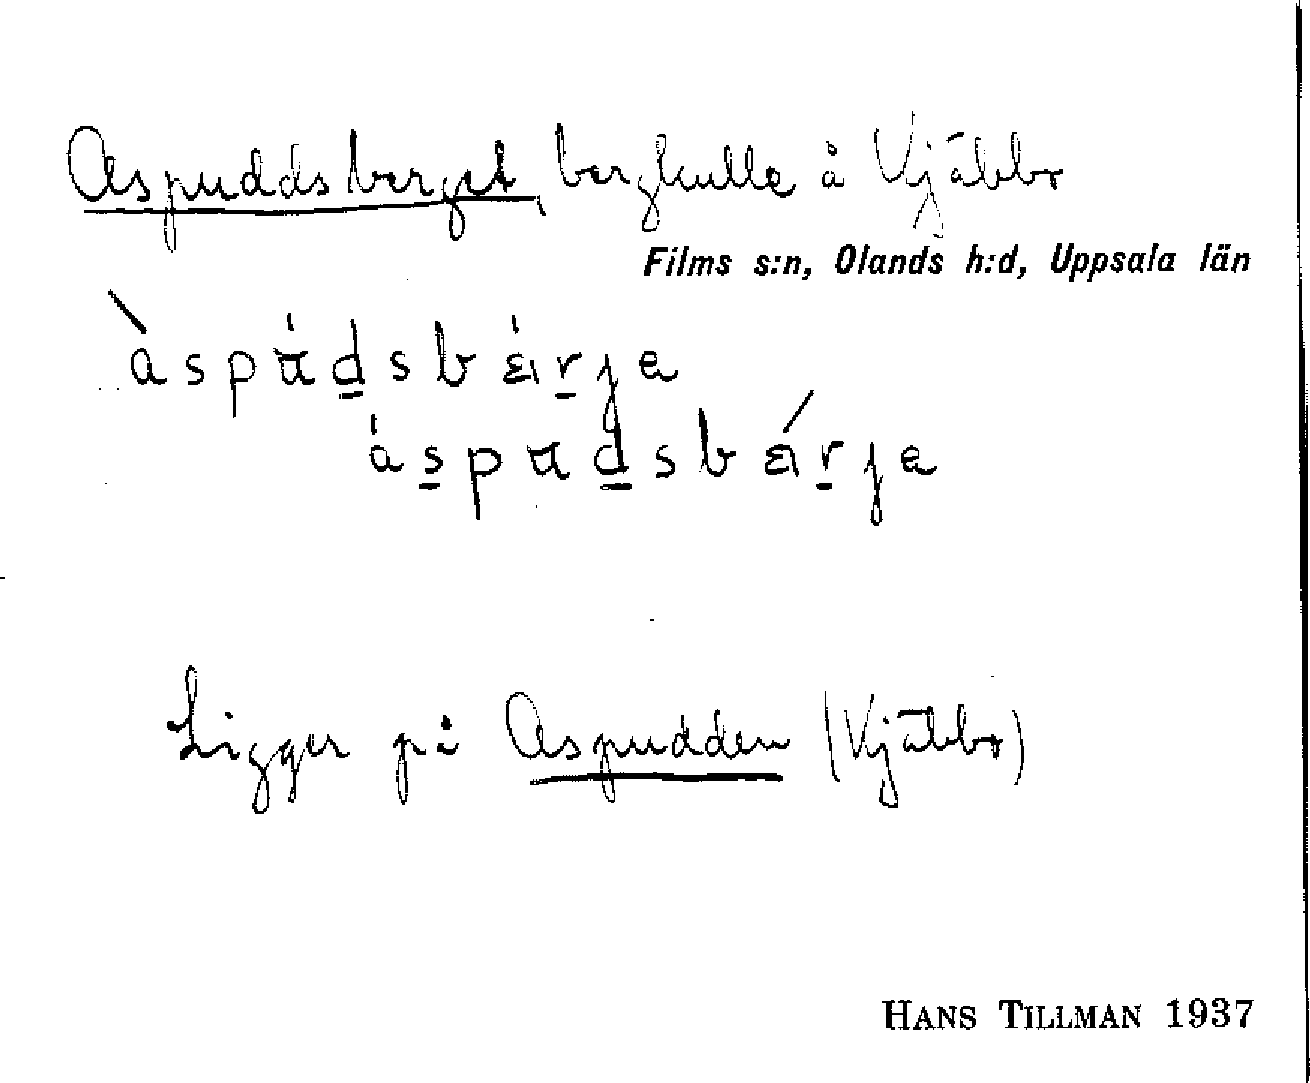 Aspuddsberget, bergkulle å Vjäbbo
Films s:n, Olands h:d, Uppsala län
àspu̇dsbä́rja
áspudsbä́rja
Ligger på Aspudden (Vjäbbo)
HANS TILLMAN 1937